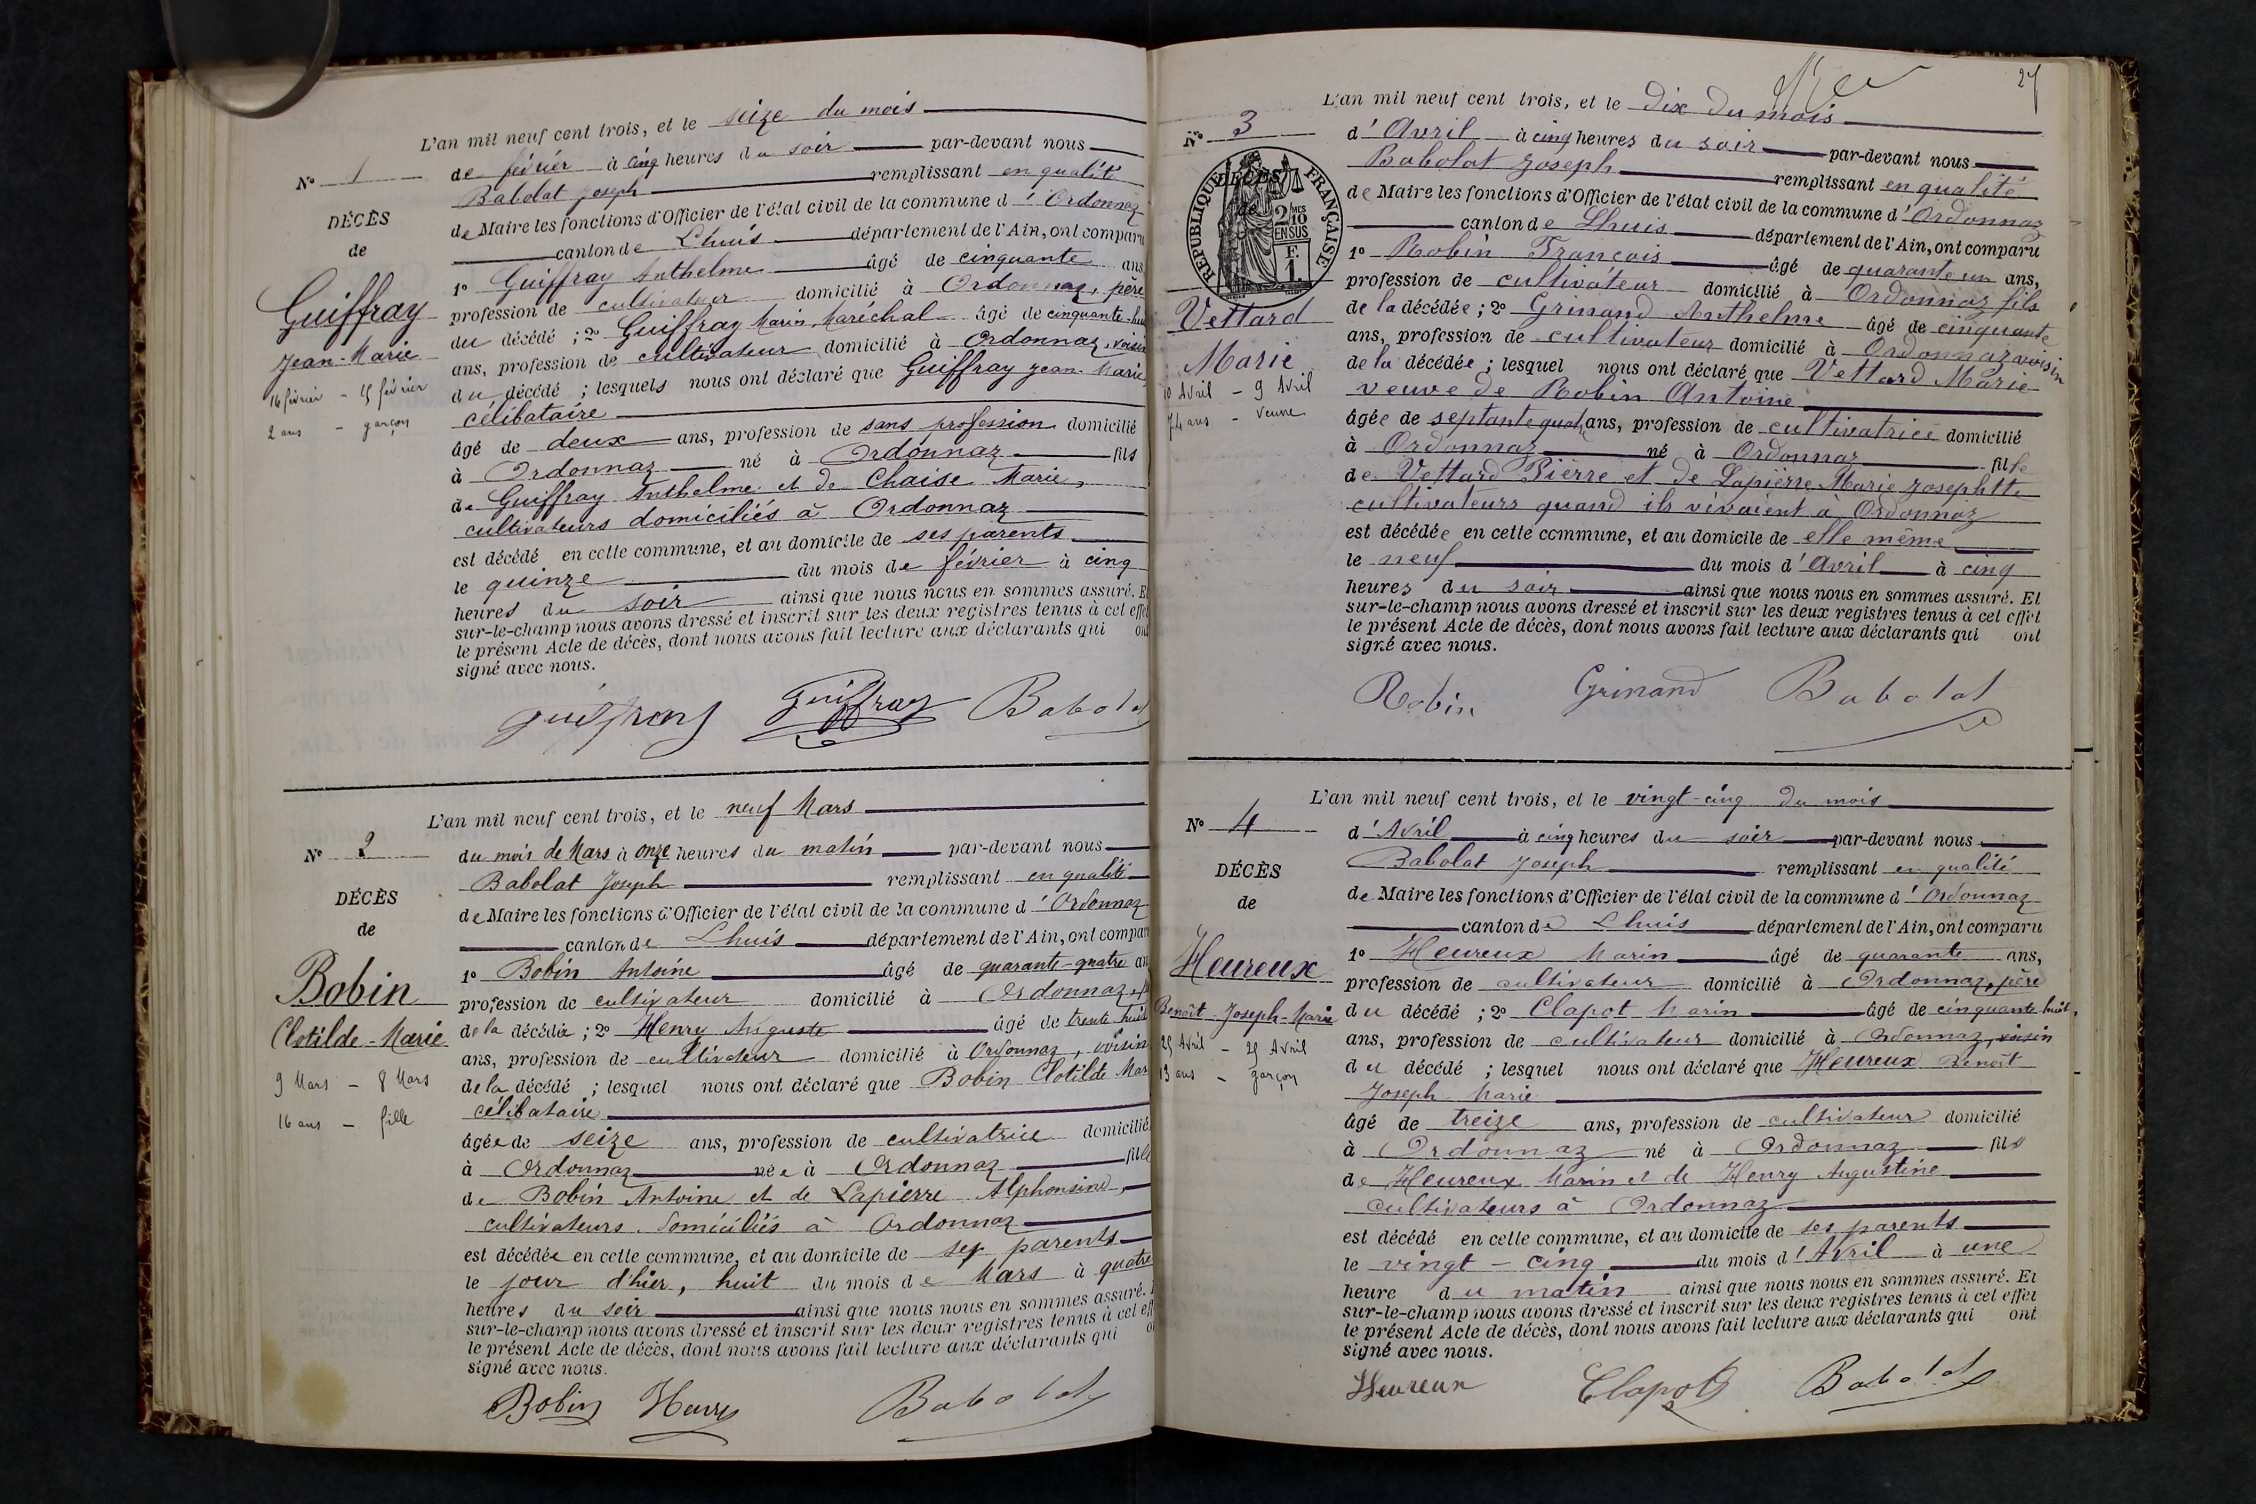 L'an mil neuf cent trois, et le seize du mois
de févier à cinq heures du soir par-devant nous
Babolat Joseph remplissant en qualité
de Maire les fonctions d'Officier de l'état civil de la commune d'Ordonnaz
canton de Lhuis département de l'Ain, ont comparu
1° Guiffray Anthelme âgé de cinquante ans
profession de cultivateur domicilié à Ordonnaz, père
du décédé ; 2° Guiffray Marin, Maréchal âgé de cinquante-hu
ans, profession de cultivateur domicilié à Ordonnaz, voisin
du décédé ; lesquels nous ont déclaré que Guiffray Jean-Marie
célibataire
âgé de deux ans, profession de sans profession domicilié
à Ordonnaz né à Ordonnaz fils
de Guiffray Anthelme et de Chaise Marie,
cultivateurs domiciliés à Ordonnaz
est décédé en cette commune, et au domicile de ses parents
le quinze du mois de février à cinq
heures du soir ainsi que nous nous en sommes assuré. E
sur-le-champ nous avons dressé et inscrit sur les deux registres tenus à cet effet
le présent Acte de décès, dont nous avons fait lecture aux déclarants qui ont
signé avec nous.
Guiffray Guiffray Babolat
N° 1
DÉCÈS
de
Guiffray
Jean-Marie
16 février - 15 février
2 ans - garçon
L'an mil neuf cent trois, et le neuf Mars
du mois de Mars à onze heures du matin par-devant nous
Babolat Joseph remplissant en qualité
de Maire les fonctions d'Officier de l'état civil de la commune d'Ordonnaz
canton de Lhuis département de l'Ain, ont compar
1° Bobin Antoine âgé de quarante-quatre an
profession de cultivateur domicilié à Ordonnaz,
de la décédée ; 2° Henry Auguste âgé de trente huit
ans, profession de cultivateur domicilié à Ordonnaz, voisin
de la décédé ; lesquel nous ont déclaré que Bobin Clotilde Mar
célibataire
âgée de seize ans, profession de cultivatrice domicilié
à Ordonnaz née à Ordonnaz fille
de Bobin Antoine et de Lapierre Alphonsine,
cultivateurs domiciliés à Ordonnaz
est décédée en cette commune, et au domicile de ses parents
le jour d'hier, huit du mois de Mars à quatre
heures du soir ainsi que nous nous en sommes assuré.
sur-le-champ nous avons dressé et inscrit sur les deux registres tenus à cet eff
le présent Acte de décès, dont nous avons fait lecture aux déclarants qui o
signé avec nous.
Bobin Henry Babolat
N° 2
DÉCÈS
de
Bobin
Clotilde-Marie
9 Mars - 8 Mars
16 ans - fille
27
L'an mil neuf cent trois, et le dix du mois
d'Avril à cinq heures du soir par-devant nous
Babolat Joseph remplissant en qualité
de Maire les fonctions d'Officier de l'état civil de la commune d'Ordonnaz
canton de Lhuis département de l'Ain, ont comparu
1° Robin Francois âgé de quarante un ans,
profession de cultivateur domicilié à Ordonnaz fils
de la décédée ; 2° Grinand Anthelme âgé de cinquante
ans, profession de cultivateur domicilié à Ordonnaz voisin
de la décédée ; lesquel nous ont déclaré que Vettard Marie
veuve de Robin Antoine
âgée de septante quat ans, profession de cultivatrice domicilié
à Ordonnaz né à Ordonnaz fille
de Vettard Pierre et de Lapierre Marie Josephtte
cultivateurs quand ils vivaient à Ordonnaz
est décédée en cette commune, et au domicile de elle même
le neuf du mois d'Avril à cinq
heures du soir ainsi que nous nous en sommes assuré. Et
sur-le-champ nous avons dressé et inscrit sur les deux registres tenus à cet effet
le présent Acte de décès, dont nous avons fait lecture aux déclarants qui ont
signé avec nous.
Robin Grinand Babolat
N° 3
DÉCÈS
de
RÉPUBLIQUE FRANÇAISE
2/10
EN SUS
F.
1.
Vettard
Marie
10 Avril - 9 Avril
74 ans - veuve
L'an mil neuf cent trois, et le vingt-cinq du mois
d'Avril à cinq heures du soir par-devant nous
Babolat Joseph remplissant en qualité
de Maire les fonctions d'Officier de l'état civil de la commune d'Ordonnaz
canton de Lhuis département de l'Ain, ont comparu
1° Heureux Marin âgé de quarante ans,
profession de cultivateur domicilié à Ordonnaz, père
du décédé ; 2° Clapot Marin âgé de cinquante huit,
ans, profession de cultivateur domicilié à Ordonnaz, voisin
du décédé ; lesquel nous ont déclaré que Heureux Benoît
Joseph Marie
âgé de treize ans, profession de cultivateur domicilié
à Ordonnaz né à Ordonnaz fils
de Heureux Marin et de Henry Augustine
cultivateurs à Ordonnaz
est décédé en cette commune, et au domicile de ses parents
le vingt-cinq du mois d'Avril à une
heure du matin ainsi que nous nous en sommes assuré. Et
sur-le-champ nous avons dressé et inscrit sur les deux registres tenus à cet effet
le présent Acte de décès, dont nous avons fait lecture aux déclarants qui ont
signé avec nous.
Heureux Clapot Babolat
N° 4
DÉCÈS
de
Heureux
Benoît-Joseph-Marie
25 Avril - 25 Avril
13 ans - garçon